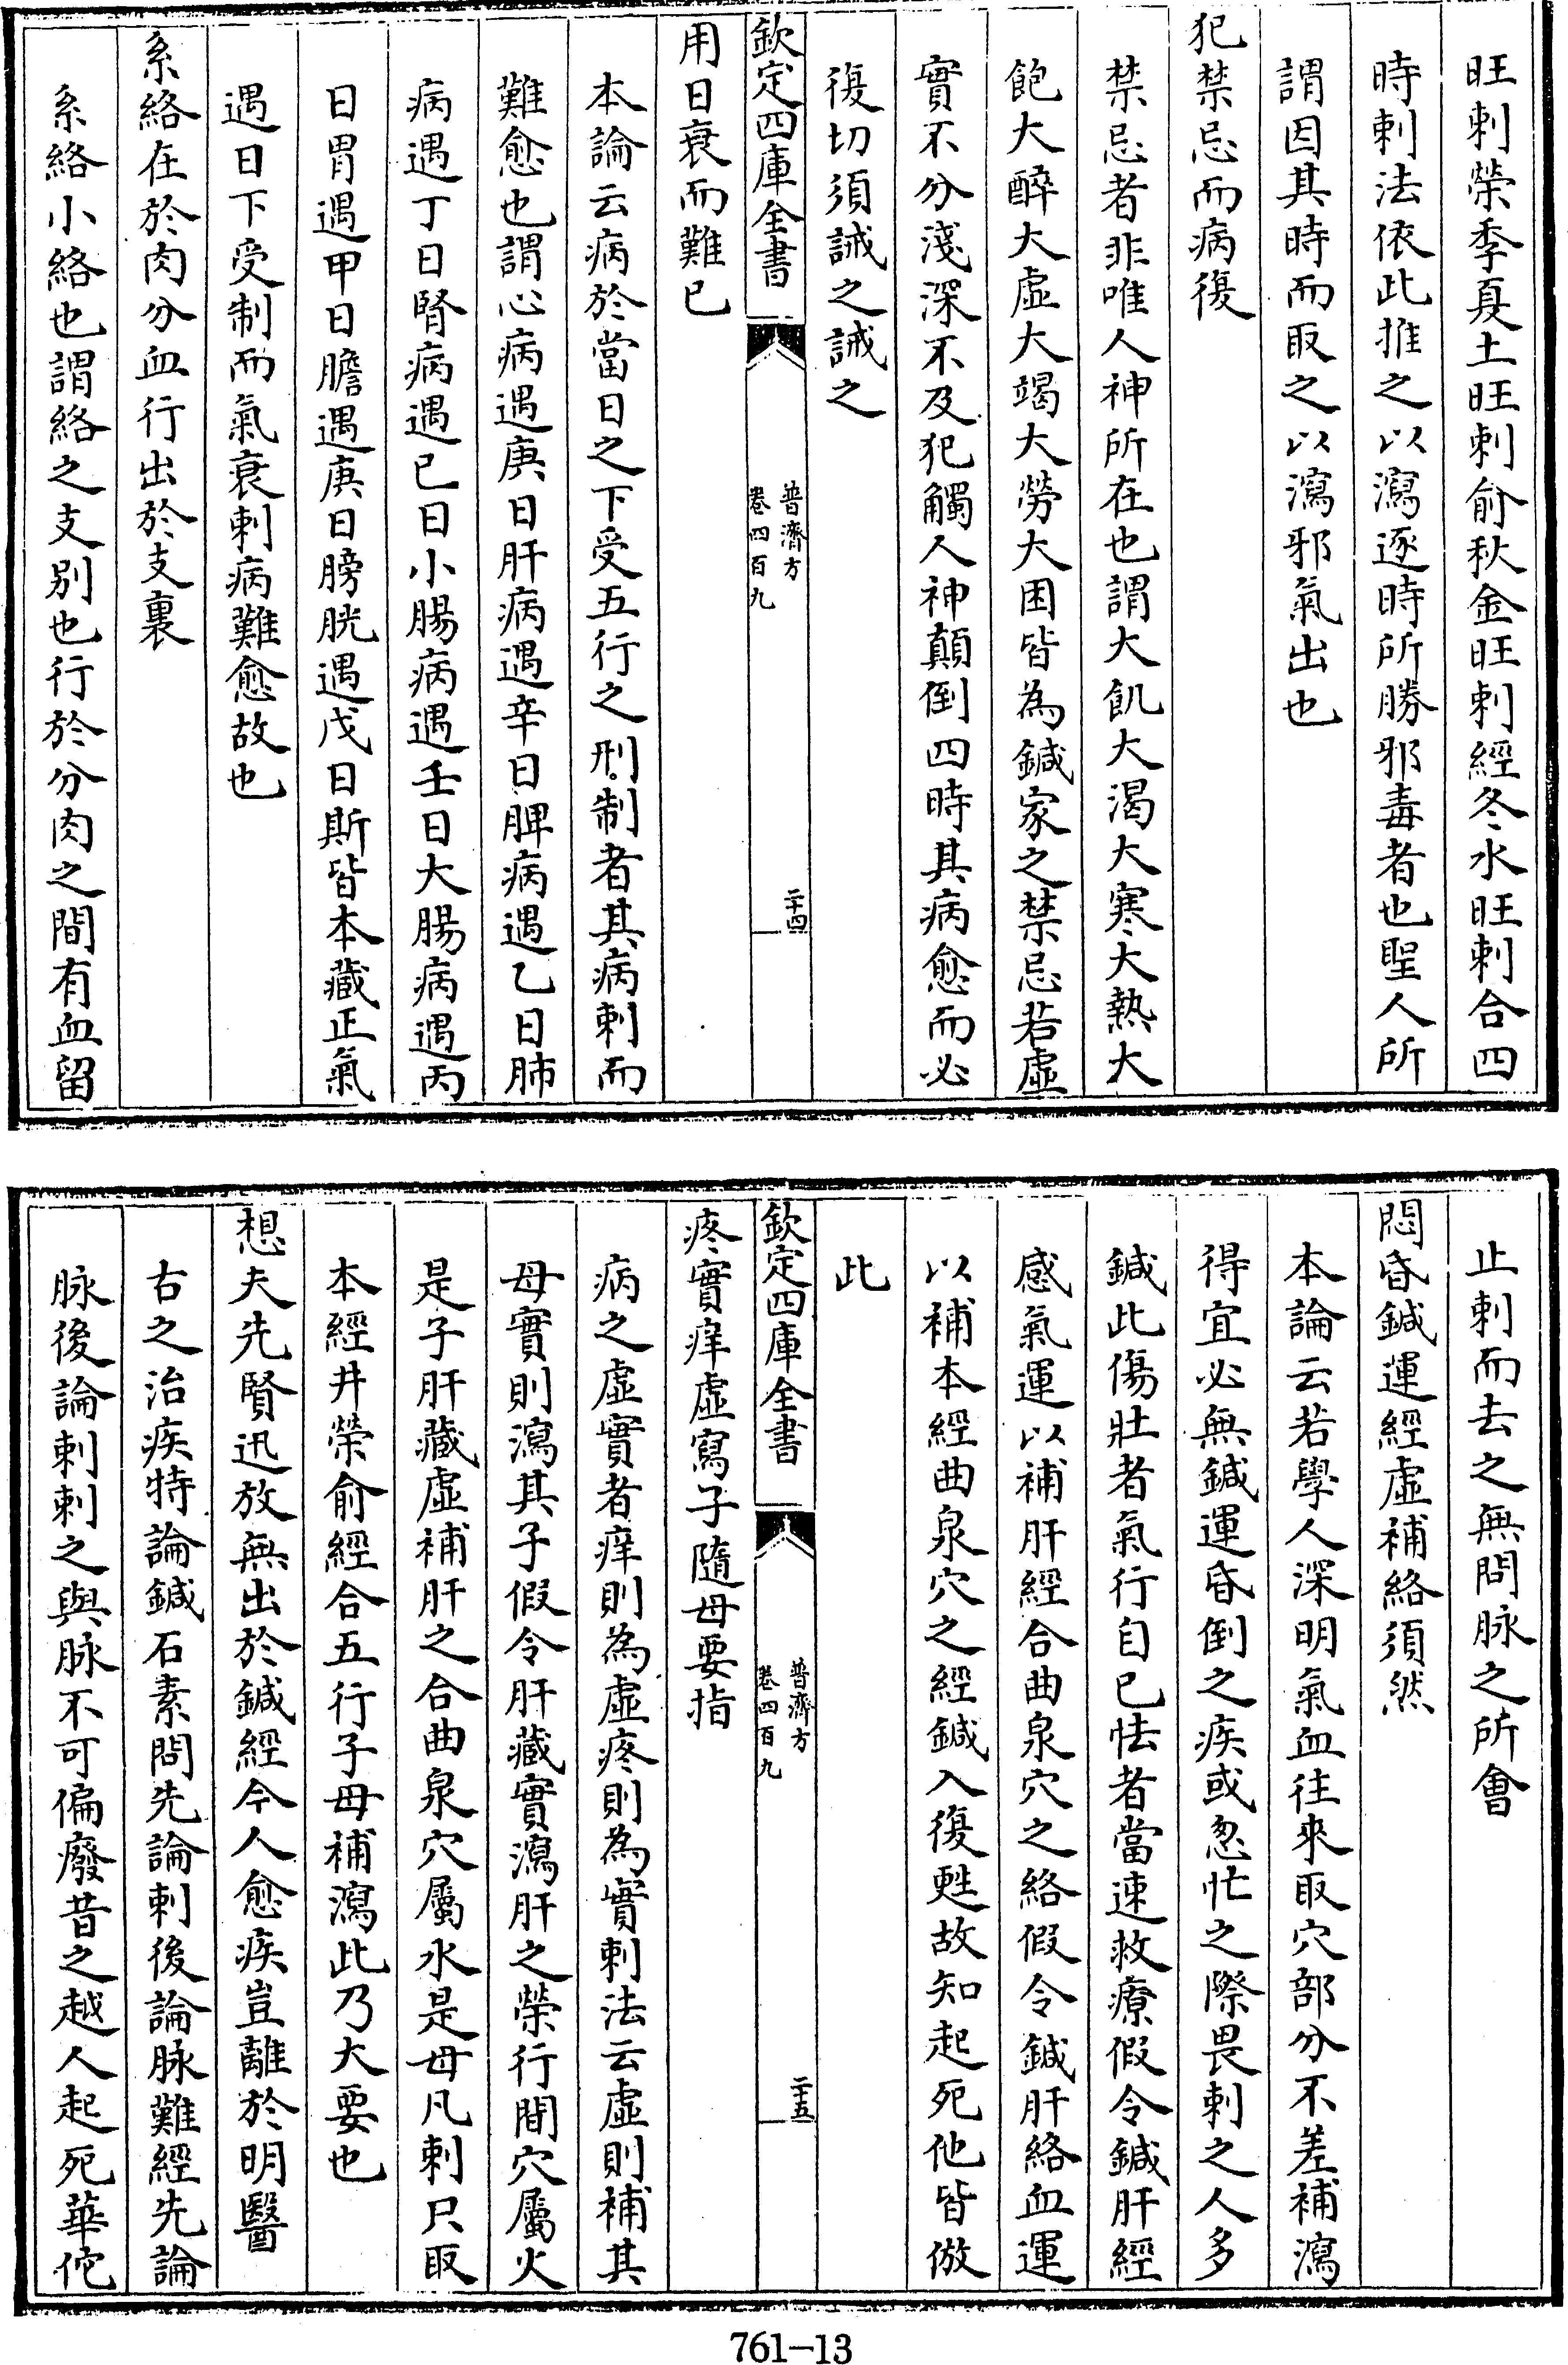 旺刺榮季夏土旺刺俞秋金旺刺經冬水旺刺合四
時刺法依此推之以瀉逐時所勝邪毒者也聖人所
謂因其時而取之以瀉邪氣出也
犯禁忌而病復
禁忌者非唯人神所在也謂大飢大渴大寒大熱大
飽大醉大虛大竭大勞大困皆為鍼家之禁忌若虛
實不分淺深不及犯觸人神顛倒四時其病愈而必
復切須誡之誡之
欽定四庫全書
普濟方
卷四百九
二十四
用日衰而難已
本論云病於當日之下受五行之刑制者其病刺而
難愈也謂心病遇庚日肝病遇辛日脾病遇乙日肺
病遇丁日腎病遇已日小腸病遇壬日大腸病遇丙
日胃遇甲日膽遇庚日膀胱遇戊日斯皆本藏正氣
遇日下受制而氣衰刺病難愈故也
系絡在於肉分血行出於支裏
系絡小絡也謂絡之支别也行於分肉之間有血留
止刺而去之無問脉之所會
悶昏鍼運經虛補絡須然
本論云若學人深明氣血往來取穴部分不差補瀉
得宜必無鍼運昏倒之疾或忽忙之際畏刺之人多
鍼此傷壯者氣行自已怯者當速救療假令鍼肝經
感氣運以補肝經合曲泉穴之絡假令鍼肝絡血運
以補本經曲泉穴之經鍼入復甦故知起死他皆倣
此
欽定四庫全書
普濟方
卷四百九
二十五
疼實痒虛寫子隨母要指
病之虛實者痒則為虛疼則為實刺法云虛則補其
母實則瀉其子假令肝藏實瀉肝之榮行間穴屬火
是子肝藏虛補肝之合曲泉穴屬水是母凡刺只取
本經井榮俞經合五行子母補瀉此乃大要也
想夫先賢迅放無出於鍼經今人愈疾豈離於明醫
古之治疾特論鍼石素問先論刺後論脉難經先論
脉後論刺刺之與脉不可偏廢昔之越人起死華佗
761-13